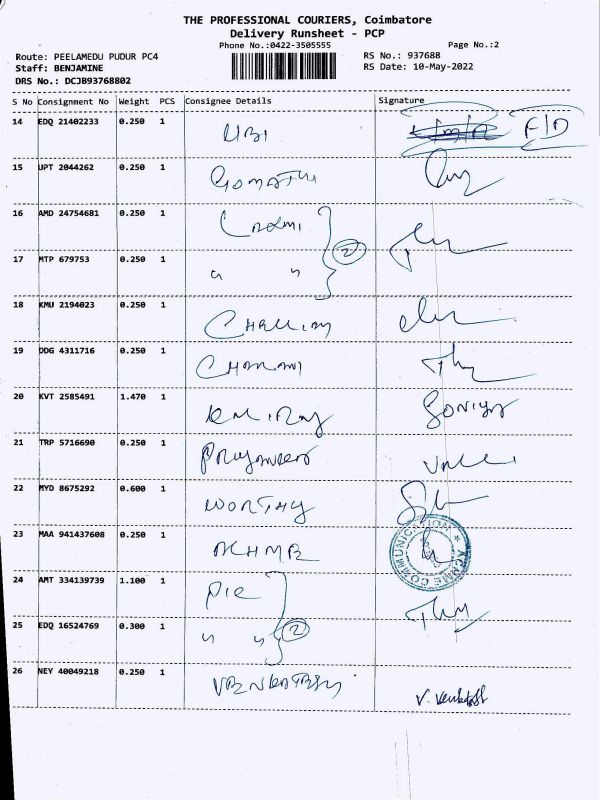 THE PROFESSIONAL COURIERS, Coimbatore
Delivery Runsheet - PCP
Phone No.:0422-3505555 Page No.:2
Route: PEELAMEDU PUDUR PC4 RS No.: 937688
Staff: BENJAMINE RS Date: 10-May-2022
DRS No.: DCJB93768802
S No Consignment No Weight PCS Consignee Details Signature
14 EDQ 21402233 0.250 1 UBI F/D
15 UPT 2044262 0.250 1 GOMATHI
16 AMD 24754681 0.250 1 Laxmi
17 MTP 679753 0.250 1 " " 2
18 KMU 2194023 0.250 1
19 DDG 4311716 0.250 1
20 KVT 2585491 1.470 1
21 TRP 5716690 0.250 1
22 MYD 8675292 0.600 1 WORTHY
23 MAA 941437608 0.250 1 ACME COMMUNICATION
24 AMT 334139739 1.100 1 PIE
25 EDQ 16524769 0.300 1 " " 2
26 NEY 40049218 0.250 1 VENKATESH